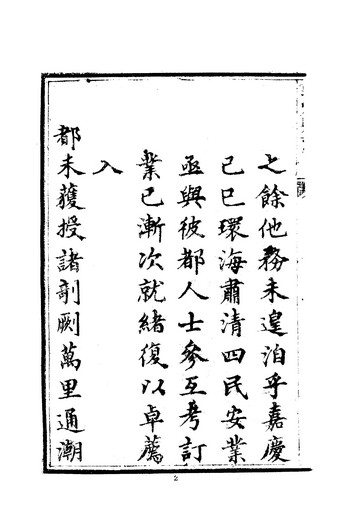 之餘他務未遑洎乎嘉慶
己巳環海肅清四民安業
亟與彼都人士參互考訂
業已漸次就緒復以卓薦
入
都未蒦授諸剞劂萬里通潮
2